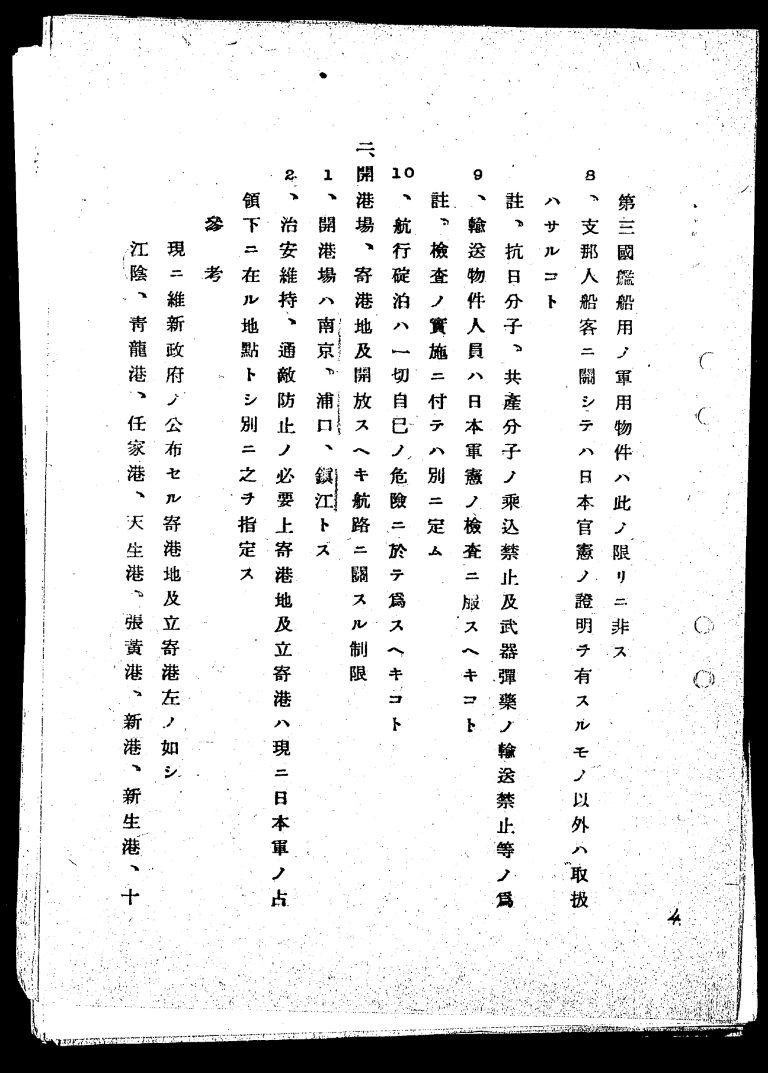 第三國艦船用ノ軍用物件ハ此ノ限リニ非ス
8、支那人船客ニ關シテハ日本官憲ノ證明ヲ有スルモノ以外ハ取扱
ハサルコト
註、抗日分子、共產分子ノ乘込禁止及武器彈藥ノ輸送禁止等ノ爲
9、輸送物件人員ハ日本軍憲ノ檢查ニ服スヘキコト
註、檢查ノ實施ニ付テハ別ニ定ム
10、航行碇泊ハ一切自己ノ危險ニ於テ爲スヘキコト
二、開港場、寄港地及開放スヘキ航路ニ關スル制限
1、開港場ハ南京、浦口、鎭江トス
2、治安維持、通敵防止ノ必要上寄港地及立寄港ハ現ニ日本軍ノ占
領下ニ在ル地點トシ別ニ之ヲ指定ス
參考
現ニ維新政府ノ公布セル寄港地及立寄港左ノ如シ
江陰、靑龍港、任家港、天生港、張黃港、新港、新生港、十
4.